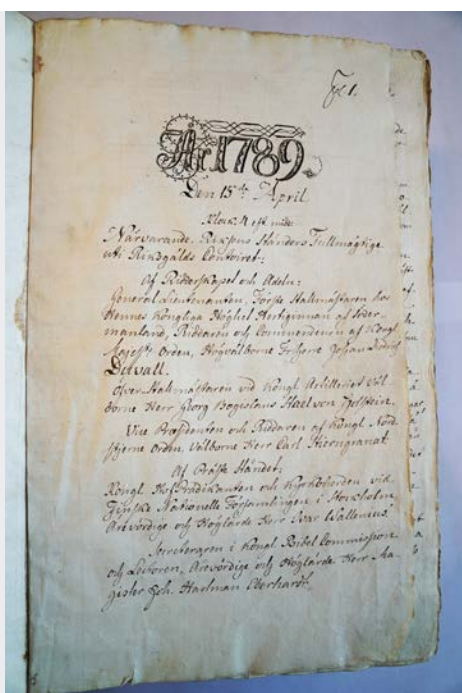 Fol. 1.
År 1789.
Den 15de April
Klock. 4 eft. midd.
Närvarande, Riksens Ständers Fullmägtige
uti Riksgälds Contoiret:
Af Ridderskapet och Adeln:
General Lieutenanten, Förste Stallmästaren hos
Hennes Kongliga Höghet Hertiginnan af Söder-
manland, Riddaren och Commendeuren af Kongl.
Majestts Orden, Högvälborne Friherre Johan
Duvall.
Öfver Stallmästaren vid Kongl. Artilleriet Väl-
borne Herr Georg Bogislaus Stael von Holstein.
Vice Præsidenten och Riddaren af Kongl. Nord
stjerne Orden, Välborne Herr Carl
Af Präste Ståndet:
Kongl. HofPredikanten och Kyrkoherden vid
Finske Nationelle Församlingen i Stockholm,
Ärevördige och Höglärde Herr Ivar Wallenius.
Secreteraren i Kongl. Bibel Commission
och Lectoren, Ärevördige och Höglärde Herr Ma-
gister Joh. Hartman Eberhardt.